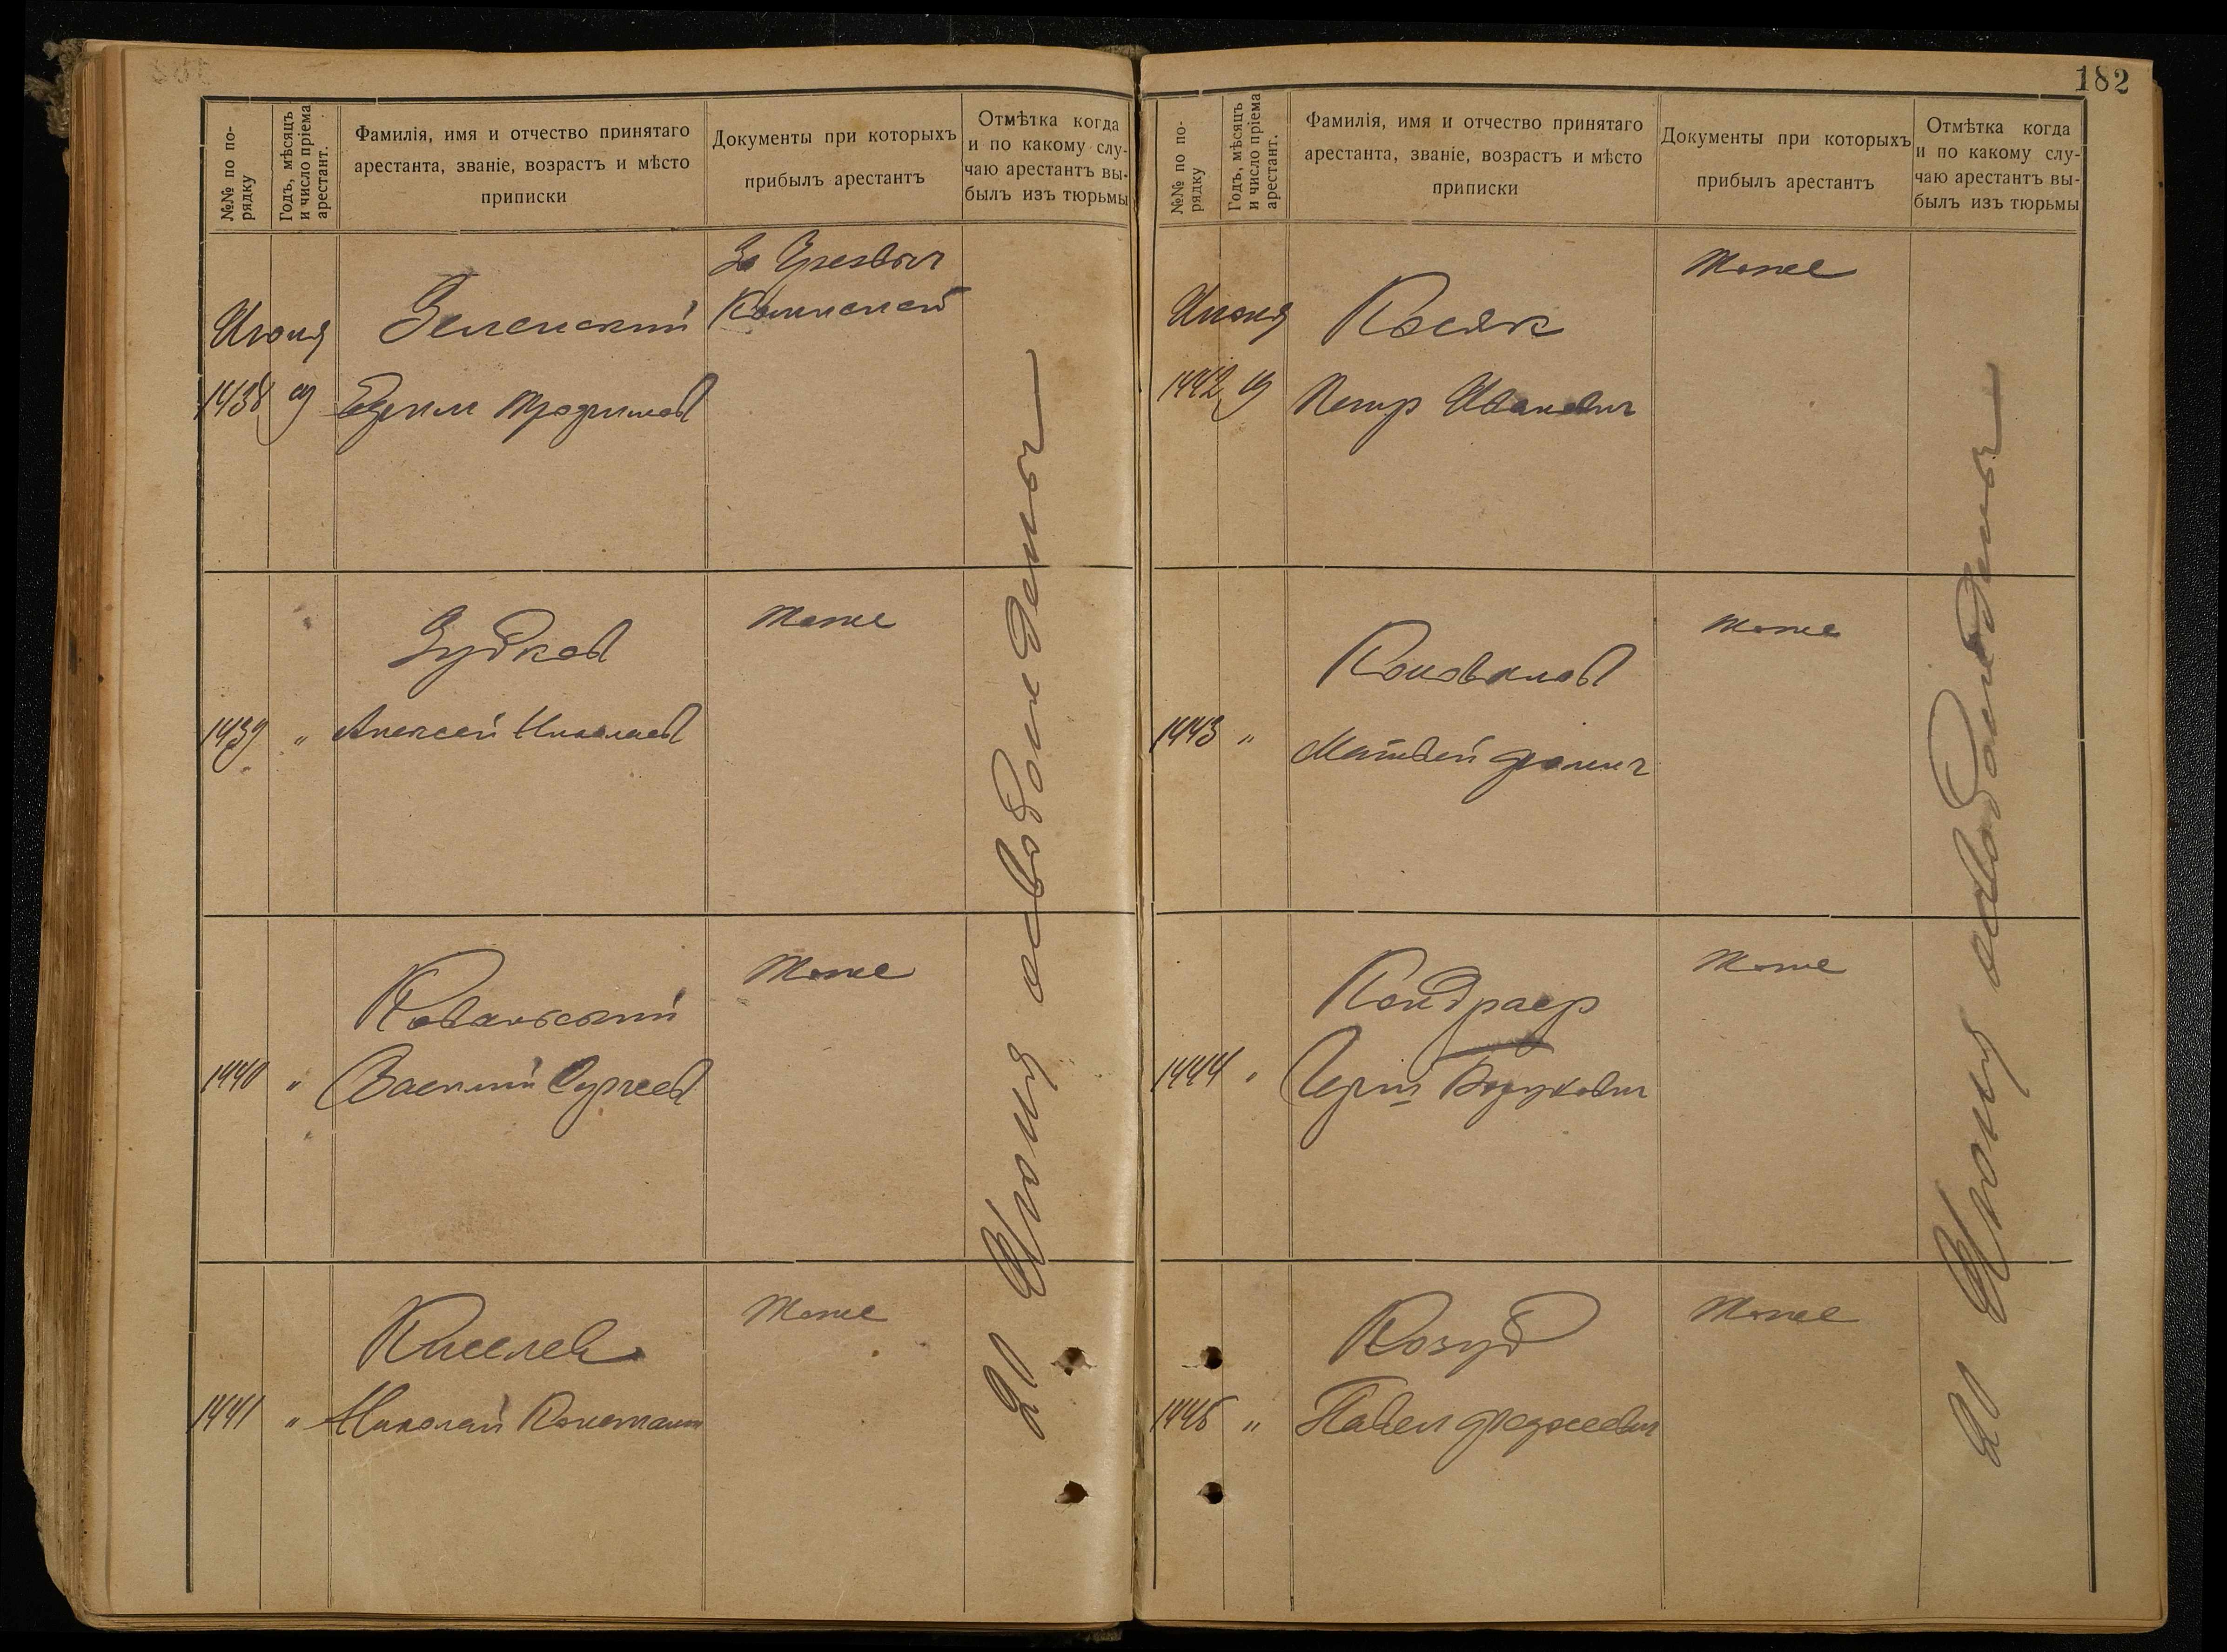 №№ по по-
рядку
Годъ, мѣсяцъ
и число пріема
арестант.
Фамилія, имя и отчество принятаго
арестанта, званіе, возрастъ и мѣсто
приписки
Документы при которыхъ
прибылъ арестантъ
Отмѣтка когда
и по какому слу-
чаю арестантъ вы-
былъ изъ тюрьмы
За Чрезвыч
Июня
Зеленский
1438 19
Зубков
тоже
1439 " Алексей Николаев
Ковальский
тоже
1440 " Василий Сергеев
Киселев
тоже
1441 " Николай Констант
20 Июня освобожденъ
182
№№ по по-
рядку
Годъ, мѣсяцъ
и число пріема
арестант.
Фамилія, имя и отчество принятаго
арестанта, званіе, возрастъ и мѣсто
приписки
Документы при которыхъ
прибылъ арестантъ
Отмѣтка когда
и по какому слу-
чаю арестантъ вы-
былъ изъ тюрьмы
тоже
Июня
Косяк
1442 19 Петр Иванович
тоже
Коновалов
1443 " Матвей
тоже
1444 "
тоже
Козуб
1445 " Павел
20 Июня освобожденъ